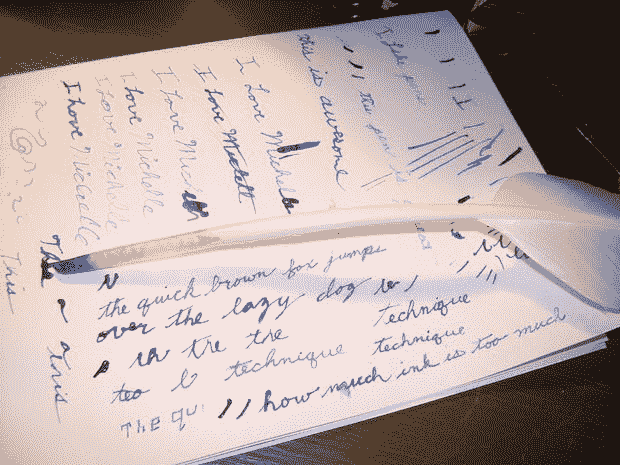 I like pens
this pen is
this is awesome
I Love Michelle
I Love
I Love
I Love Michelle
I Love Michelle
I Love Michelle
This
a
a
This
the quick brown fox jumps
over the lazy dog
tre tre
technique
teo technique technique
THE QU
how much ink is too much